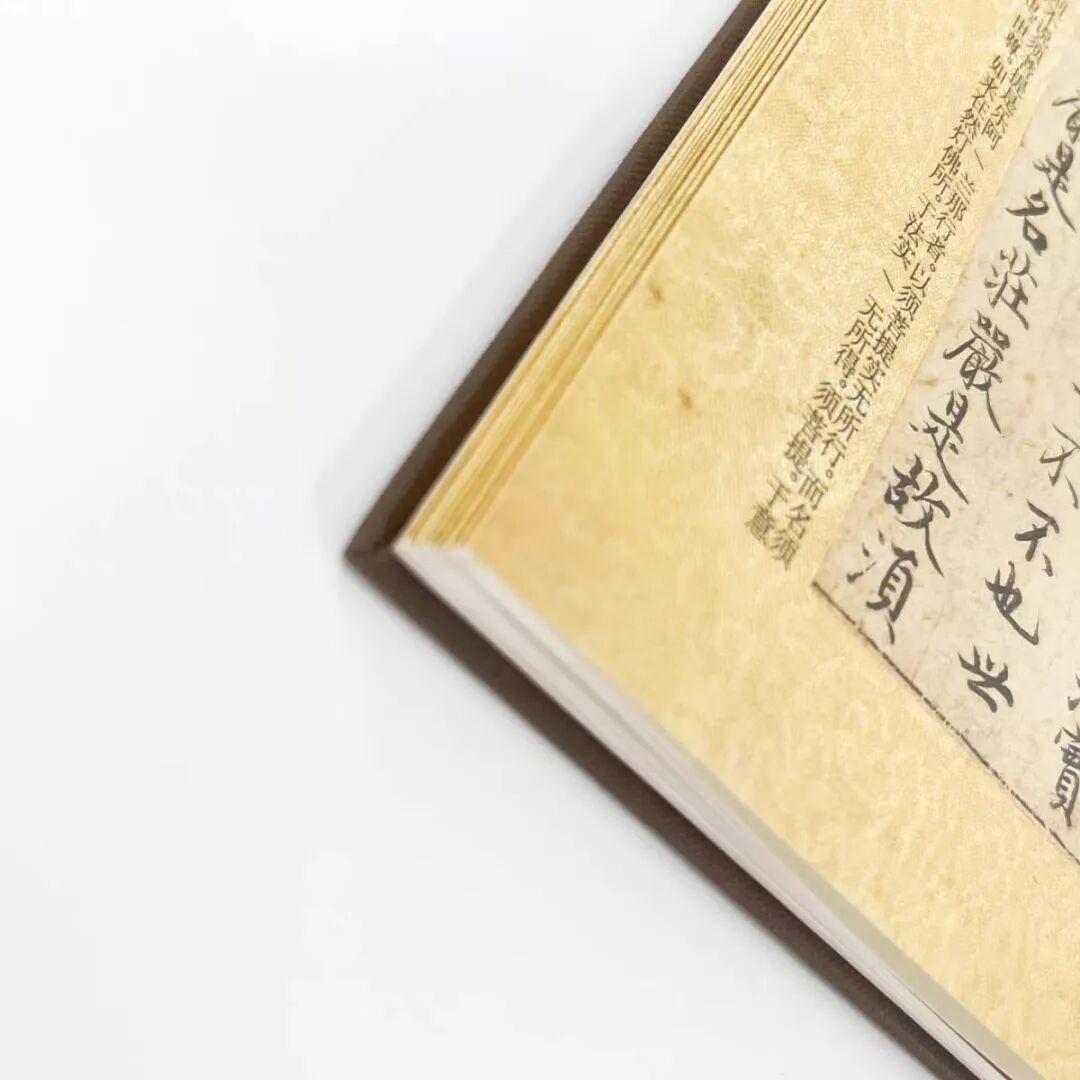 不不也世
是名莊嚴是故須
不说须菩提是乐阿/兰那行者。以须菩提实无所行。而名须
世尊。如来在然灯佛所。于法实/无所得。须菩提。于意